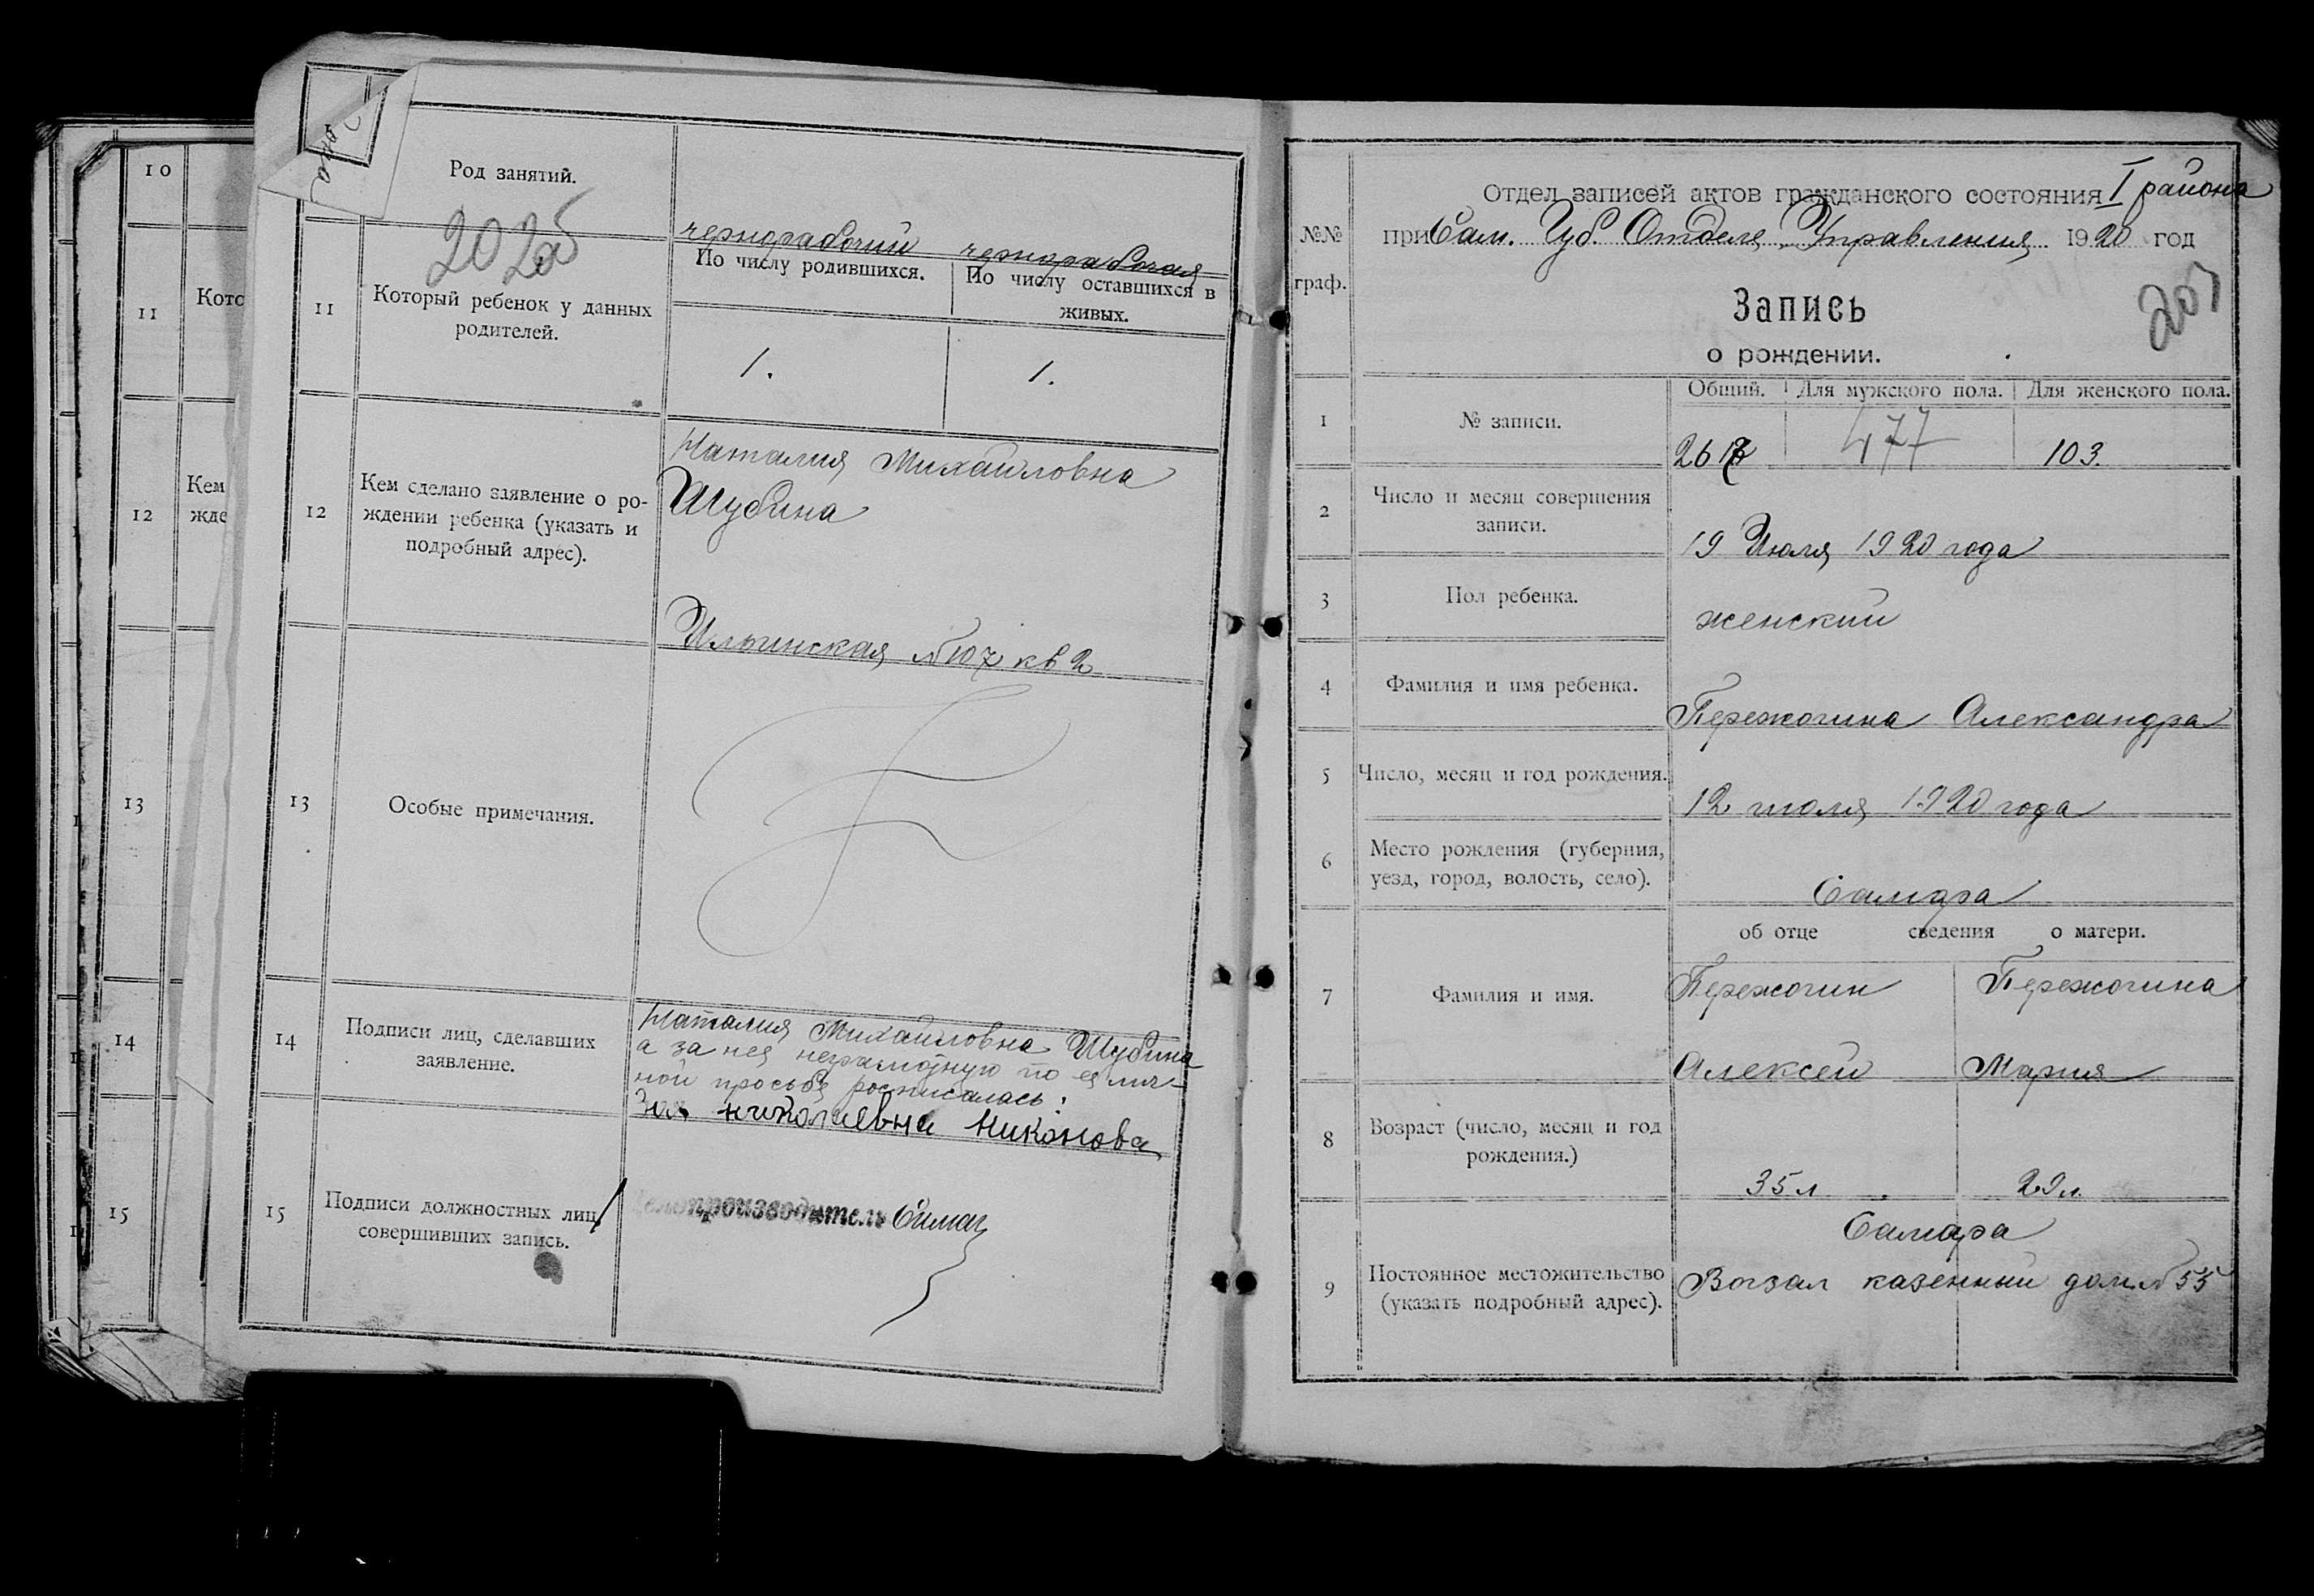 10
11
Кото
12
Кем
жде
13
14
15
Род занятий.
чернорабочий
чернорабочая
202об
11
Который ребенок у данных
родителей.
По числу родившихся.
По числу оставшихся в
живых.
1.
1.
12
Кем сделано заявление о ро-
ждении ребенка (указать и
подробный адрес).
Наталия Михайловна
Шубина
Ильинская №107 кв 2
13
Особые примечания.
14
Подписи лиц, сделавших
заявление.
Наталия Михайловна Шубина
а за нея неграмотную по ея лич-
ной просьбе росписалась:
николаевна никонова
15
Подписи должностных лиц,
совершивших запись.
Делопроизводитель
№№
граф.
Отдел записей актов гражданского состояния I района
при Сам. Губ. Отделе Управления 1920 год
203
Запись
о рождении.
1
№ записи.
Общий.
Для мужского пола.
Для женского пола.
477
103.
2
Число и месяц совершения
записи.
19 Июля 1920 года
3
Пол ребенка.
женский
4
Фамилия и имя ребенка.
Пережогина Александра
5
Число, месяц и год рождения.
12 июля 1920 года
6
Место рождения (губерния,
уезд, город, волость, село).
Самара
об отце сведения о матери.
7
Фамилия и имя.
Пережогин
Алексей
Пережогина
Мария
8
Возраст (число, месяц и год
рождения.)
35 л
29 л.
9
Постоянное местожительство
(указать подробный адрес).
Самара
Вогзал казенный дом № 55